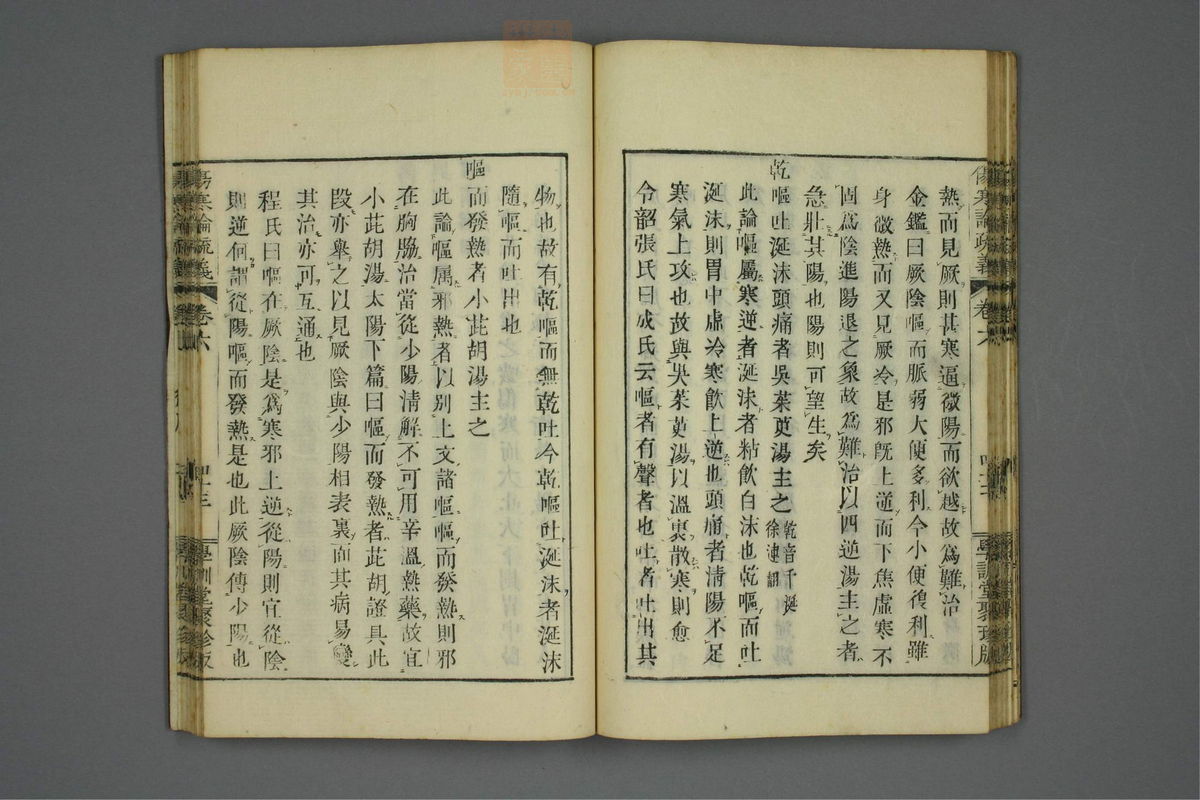 熱而見厥則甚寒逼微陽而欲越故爲難治
金鑑曰厥陰嘔而脈弱大便多利今小便復利雖
身微熱而又見厥冷是邪旣上逆而下焦虛寒不
固爲陰進陽退之象故爲難治以四逆湯主之者
急壯其陽也陽則可望生矣
乾嘔吐涎沫頭痛者吳茱萸湯主之乾音千涎徐連翻
此論嘔屬寒逆者涎沫者粘飮白沫也乾嘔而吐
涎沫則胃中虛冷寒飮上逆也頭痛者淸陽不足
寒氣上攻也故與吳茱萸湯以溫裏散寒則愈
令韶張氏曰成氏云嘔者有聲者也吐者吐出其
傷寒論疏義
卷六
學訓堂聚珍版
物也故有乾嘔而無乾吐今乾嘔吐涎沫者涎沫
隨嘔而吐出也
嘔而發熱者小茈胡湯主之
此論嘔属邪熱者以别上文諸嘔嘔而發熱則邪
在胸脇治當從少陽淸解不可用辛溫熱藥故宜
小茈胡湯太陽下篇曰嘔而發熱者茈胡證具此
段亦舉之以見厥陰與少陽相表裏而其病易變
其治亦可互通也
程氏曰嘔在厥陰是爲寒邪上逆從陽則宜從陰
則逆何謂從陽嘔而發熱是也此厥陰傳少陽也
傷寒論疏義
卷六
學訓堂聚珍版